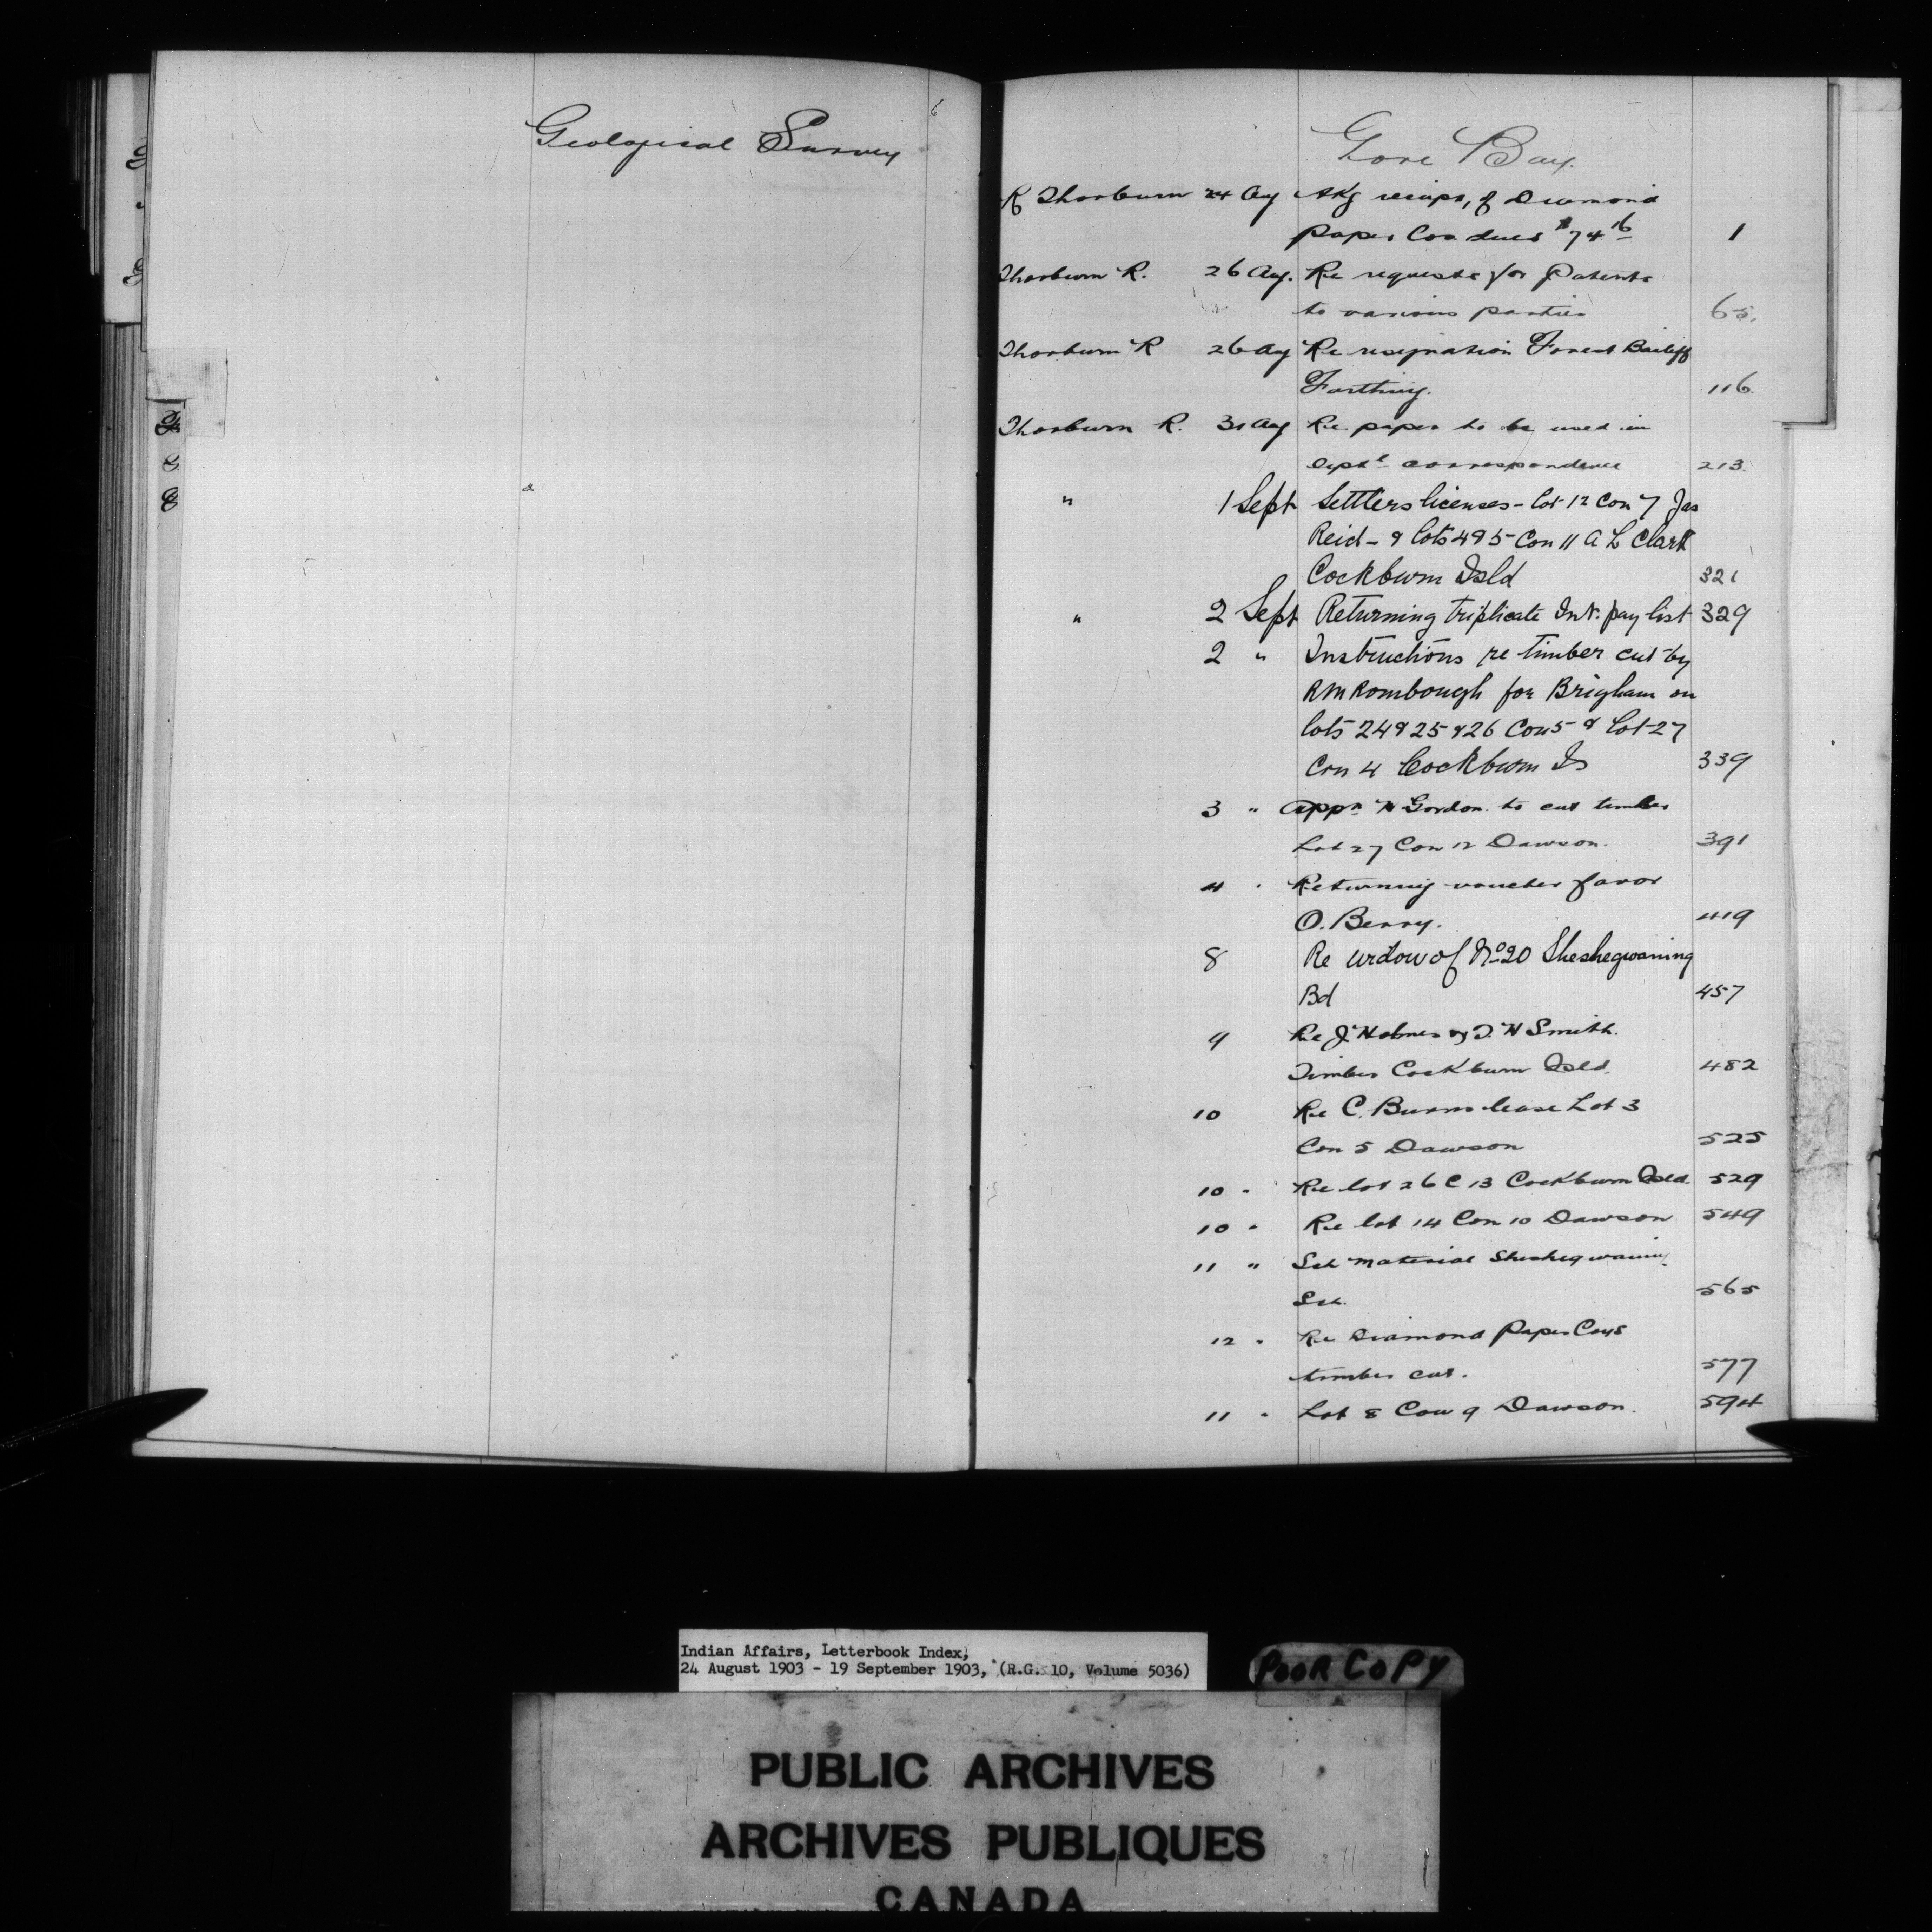 Geological Survey
Gore Bay.
R Thorburn 24 Aug Akg receipt, of Diamond
Paper Cos dues $74 16 1
Thorburn R. 26 Aug. Re requests for Patents
to various parties 65.
Thorburn R 26 Aug Re resignation Forest Bailiff
Farthing. 116.
Thorburn R. 31 Aug Re paper to be used in
Deptl correspondence 213.
" 1 Sept Settlers licenses - lot 12 Con 7 Jas
Reid - & lots 4 & 5 Con 11 A L Clark
Cockburn Isld 321
" 2 Sept Returning triplicate Int. pay list 329
2 " Instructions re timber cut by
RM Rombough for Brigham on
lots 24 & 25 & 26 Con 5 & Lot 27
Con 4 Cockburn Is 339
3 " Appn N Gordon to cut timber
Lot 27 Con 12 Dawson. 391
4 " Returning voucher favor
O. Berry. 419
8 Re widow of No 20 Sheshegwaning
Bd 457
9 Re J. Holmes & T. H Smith.
Timber Cockburn Isld. 482
10 Re C. Burns lease Lot 3
Con 5 Dawson 525
10 " Re lot 26 C 13 Cockburn Isld. 529
10 " Re lot 14 Con 10 Dawson 549
11 " Sch material Sheshegwaning
Sch. 565
12 " Re Diamond Paper Coys
timber cut. 577
11 " Lot 8 Con 9 Dawson. 594
Indian Affairs, Letterbook Index,
24 August 1903 - 19 September 1903, (R.G. 10, Volume 5036)
POOR COPY
PUBLIC ARCHIVES
ARCHIVES PUBLIQUES
CANADA